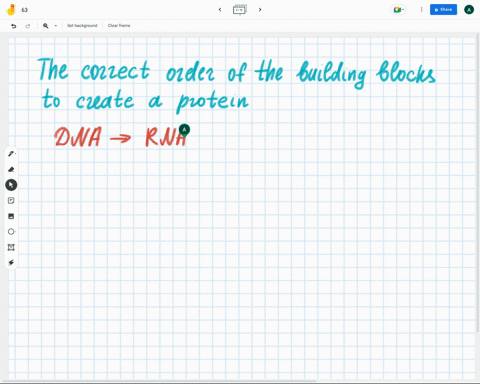 63
Share
A
Set background
Clear frame
The correct order of the building blocks
to create a protein
DNA → RNA
A